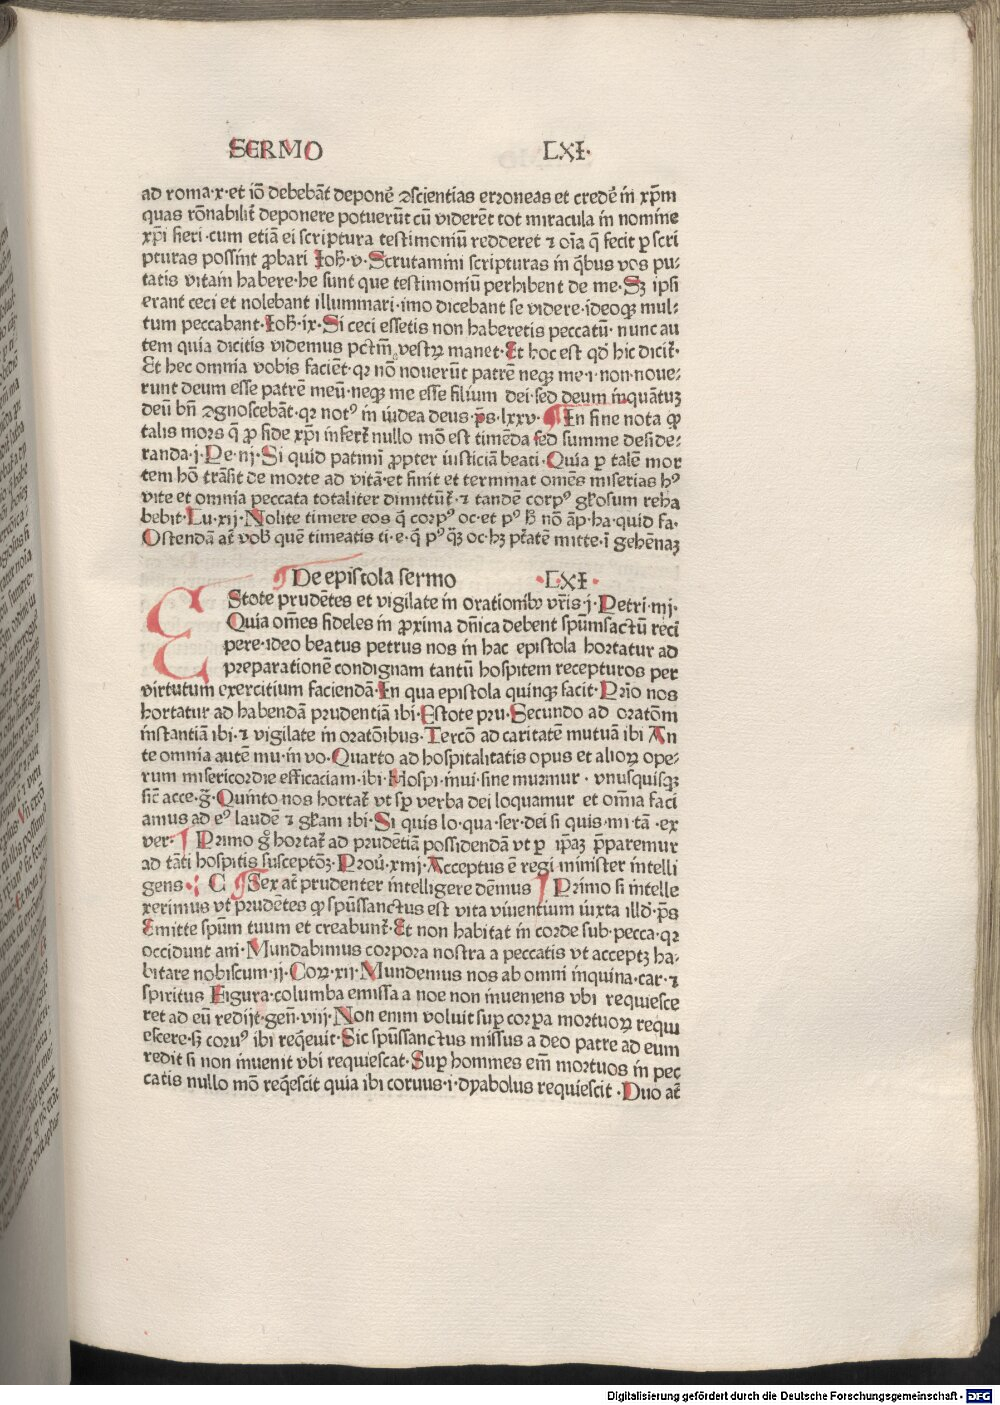 SERMO LXI·
ad roma·x·et iō debebāt deponē ꝯscientias erroneas et credē in xp̄m
quas rōnabilit̄ deponere potuerūt cū viderēt tot miracula in nomine
xp̄i fieri·cum etiā ei scriptura testimoniū redderet ⁊ oīa q̄ fecit ꝑ scri
pturas possint ꝓbari Ioh̄·v·Scrutamini scripturas in q̄bus vos pu⸗
tatis vitam habere·he sunt que testimoniū perhibent de me·Sꝫ ipsi
erant ceci et nolebant illuminari·imo dicebant se videre·ideoqꝫ mul⸗
tum peccabant·Ioh̄·ix·Si ceci essetis non haberetis peccatū·nunc au
tem quia dicitis videmus pctm̄ vestꝝ manet·Et hoc est qd̄ hic dicit̄·
Et hec omnia vobis faciēt·qꝛ nō nouerūt patrē neqꝫ me·i·non·noue⸗
runt deum esse patrē meū·neqꝫ me esse filium dei·sed deum inquātuꝫ
deū bn̄ ꝯgnoscebāt·qꝛ notꝰ in iudea deus·p̄s·lxxv· In fine nota ꝙ
talis mors q̄ ꝓ fide xp̄i infert̄ nullo mō est timēda sed summe deside⸗
randa·j·Pe·iij·Si quid patimī ꝓpter iusticiā beati·Quia ꝑ talē mor
tem hō trāsit de morte ad vitā·et finit et terminat omēs miserias hꝰ
vite et omnia peccata totaliter dimittūt̄·⁊ tandē corpꝰ gl̄osum reha
bebit·Lu·xij·Nolite timere eos q̄ corpꝰ oc·et pꝰ h̄ nō āp·ha·quid fa·
Ostendā at̄ vob̄ quē timeatis ti·e·q̄ pꝰ q̄ꝫ oc·hꝫ ptātē mitte·ī gehēnaꝫ
De epistola sermo ·LXI·
EStote prudētes et vigilate in orationibꝫ vr̄is j·Petri·iiij·
Quia om̄es fideles in ꝓxima dn̄ica debent spūmsactū reci
pere·ideo beatus petrus nos in hac epistola hortatur ad
preparationē condignam tantū hospitem recepturos per
virtutum exercitium faciendā·In qua epistola quinqꝫ facit·Prīo nos
hortatur ad habendā prudentiā ibi·Estote pru·Secundo ad oratōm
instantiā ibi·⁊ vigilate in oratōibus·Tercō ad caritatē mutuā ibi An
te omnia autē mu·in vo·Quarto ad hospitalitatis opus et alioꝝ ope⸗
rum misericordie efficaciam·ibi·Hospi·inui·sine murmur·vnusquisqꝫ
sic̄ acce·ḡ·Quinto nos hortat̄ vt sꝑ verba dei loquamur et om̄ia faci
amus ad eꝰ laudē ⁊ gl̄iam ibi·Si quis lo·qua·ser·dei si quis·mi·tā·ex
ver· Primo gͦ hortat̄ ad prudētiā possidendā vt ꝑ ip̄aꝫ p̄paremur
ad tāti hospitis susceptōꝫ·Prou̇·xiiij·Acceptus ē regi minister intelli
gens· C Sex at̄ prudenter intelligere dēmus Primo si intelle
xerimus vt prudētes ꝙ spūssanctus est vita viuentium iuxta illd̄·p̄s
Emitte spūm tuum et creabunt̄·Et non habitat in corde sub·pecca·qꝛ
occidunt ani·Mundabimus corpora nostra a peccatis vt acceptꝫ ha⸗
bitare nobiscum·ij·Coꝝ·xij·Mundemus nos ab omni inquina·car·⁊
spiritus Figura·columba emissa a noe non inueniens vbi requiesce
ret ad eū redijt·gen̄·viij·Non enim voluit suꝑ corꝑa mortuoꝝ requi
escere·sꝫ coruꝰ ibi req̄euit·Sic spūssanctus missus a deo patre ad eum
redit si non inuenit vbi requiescat·Suꝑ homines em̄ mortuos in pec
catis nullo mō req̄escit quia ibi coruus·i·dyabolus requiescit·Duo at̄
Digitalisierung gefördert durch die Deutsche Forschungsgemeinschaft - DFG